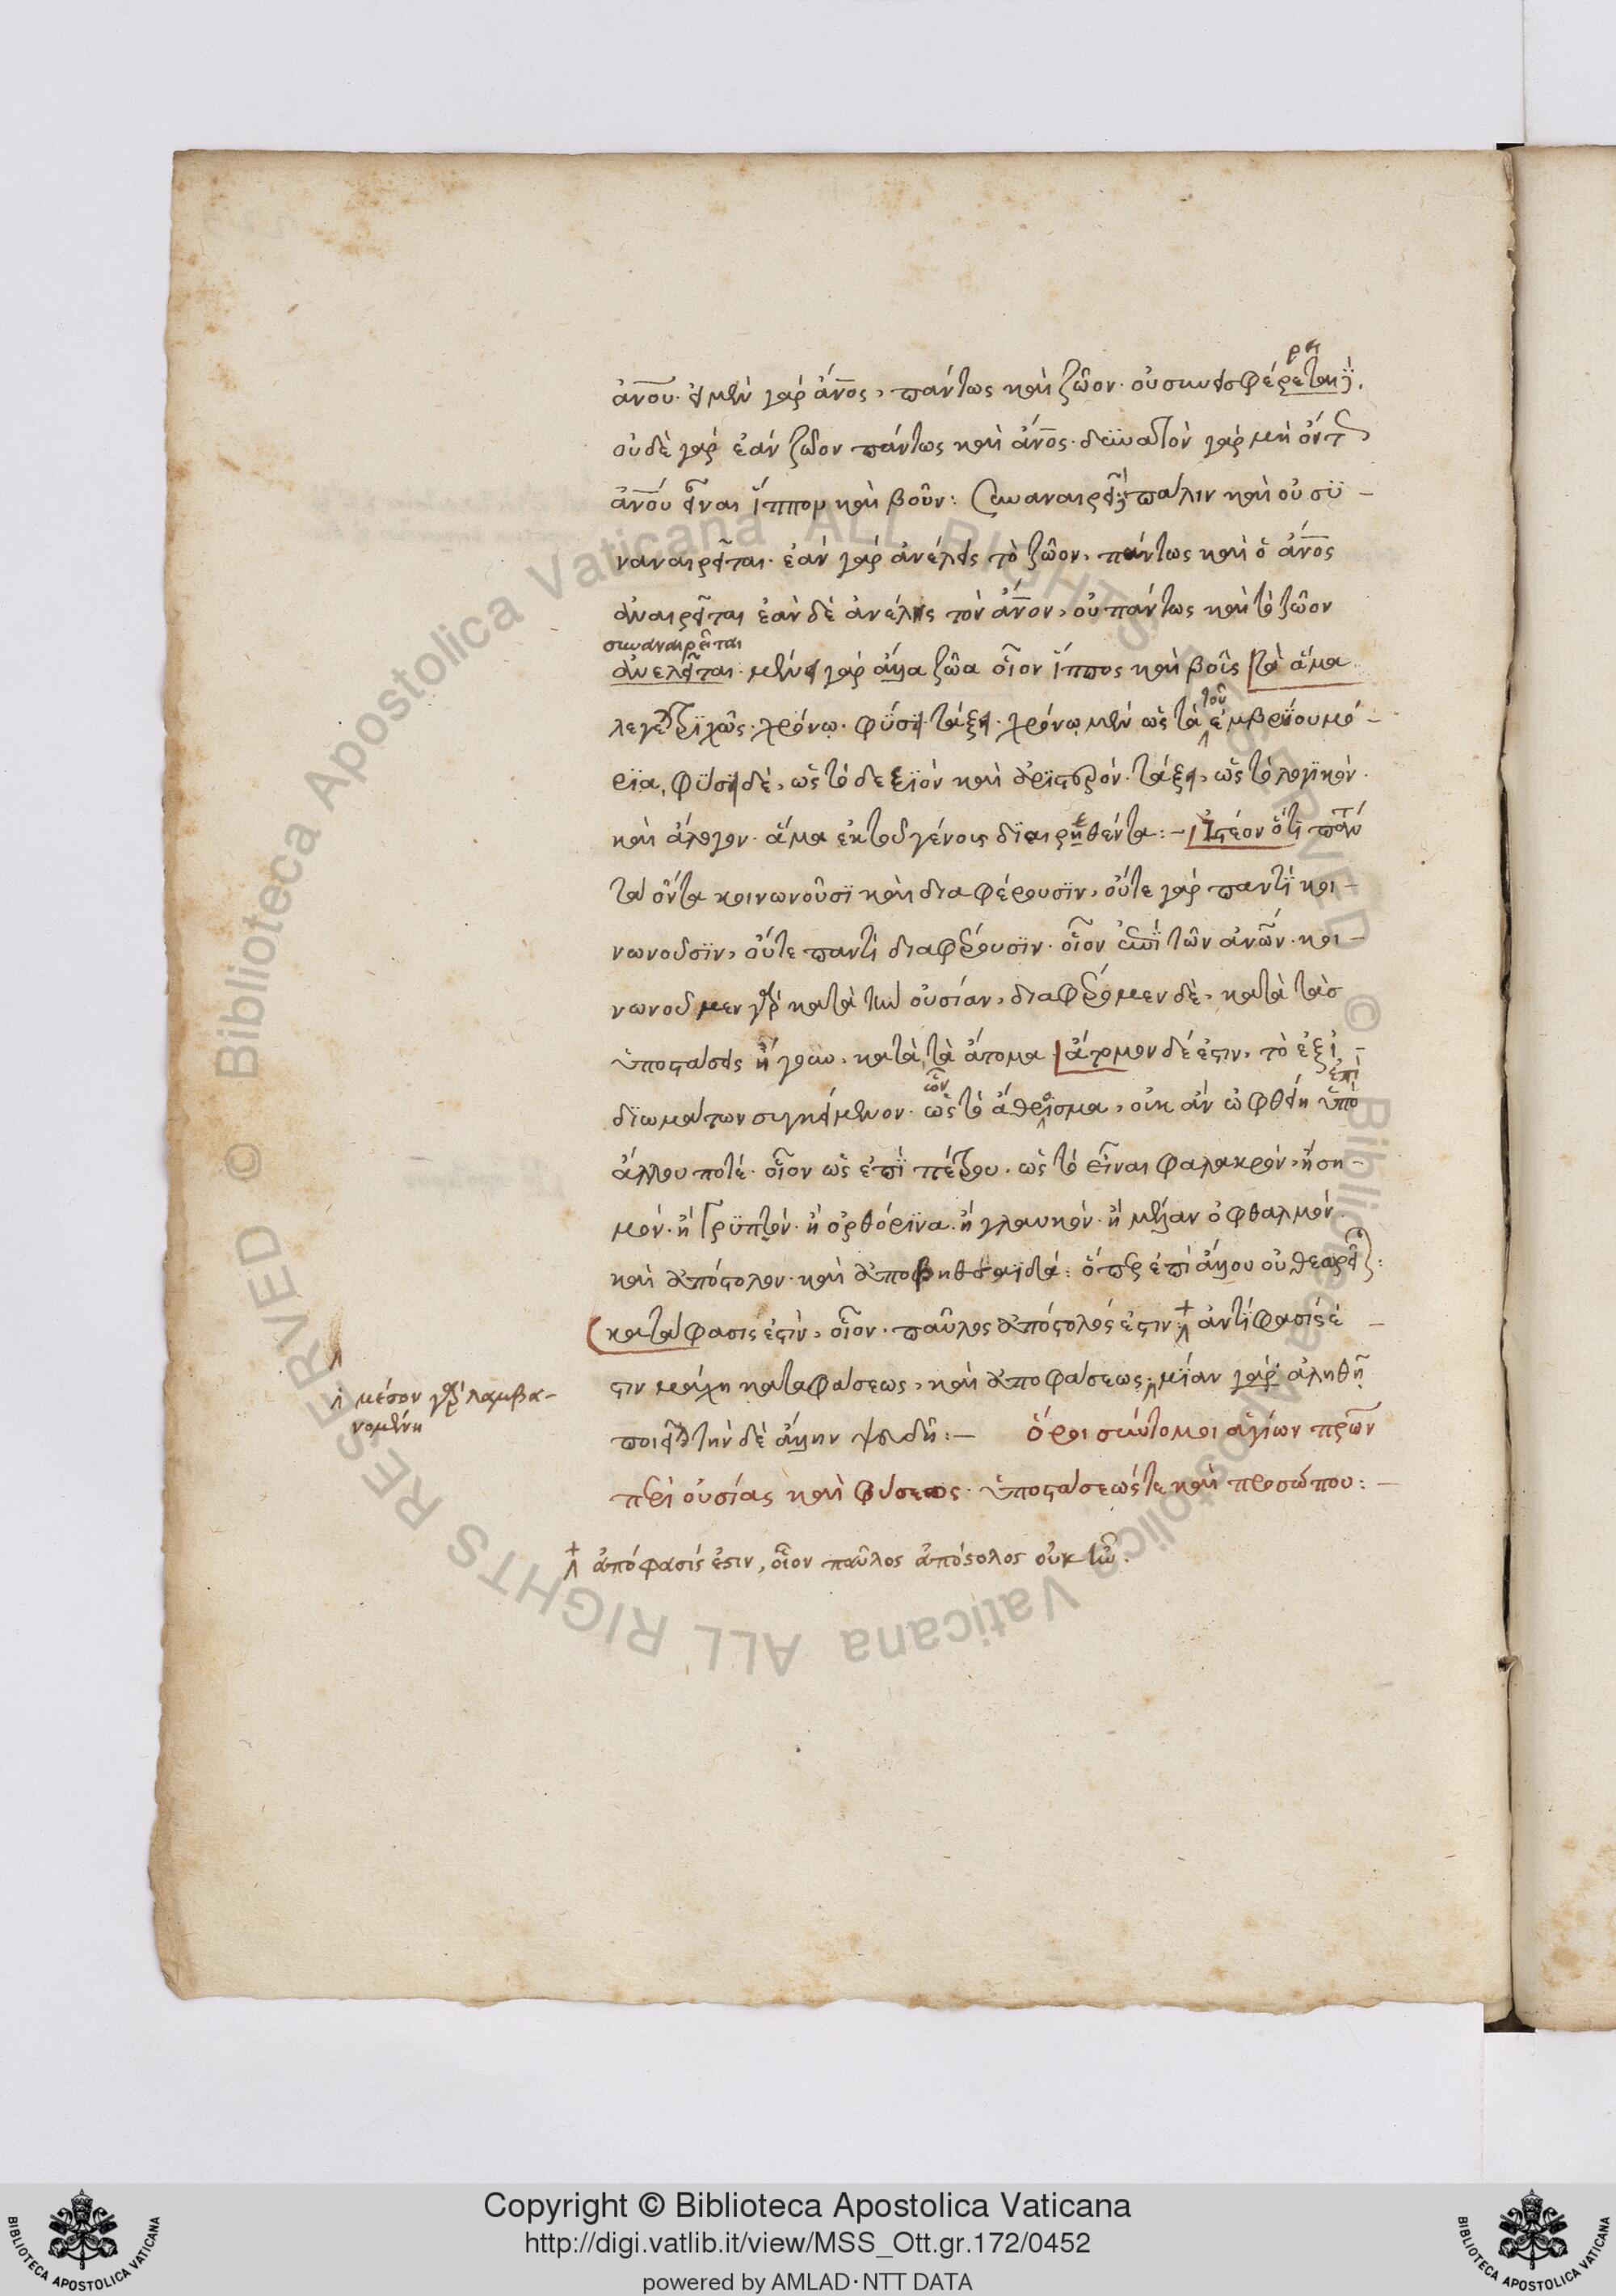 ρει
ἀν̅ου. εἰ μὲν γάρ ἄν̅ος, πάντως καὶ ζῶον. οὐ συνεισφέρεται
οὐδὲ γάρ ἐάν ζῶον πάντως καὶ ἄν̅ος. δϋνατὸν γάρ μὴ ὄντ
ἀν̅ου εἶναι ἵππον καὶ βοῦν: συναναιρεῖ πάλιν καὶ οὐ συ-
ναναιρεῖται. ἐάν γάρ ἀνέλεις τὸ ζῶον, πάντως καὶ ὁ ἄν̅ος
ἀναιρεῖται ἐὰν δὲ ἀνέλῃς τὸν ἄν̅ον, οὐ πάντως καὶ τὸ ζῶον
συναναιρεῖται
ἀνελεῖται. μένει γάρ ἄλλα ζῶα οἷον ἵππος καὶ βοῦς τὰ ἅμα
τοῦ
λέγε τριχῶς. χρόνῳ. φύσει. τάξει. χρόνῳ μὲν ὡς τὰ ἐμβρύου μό-
ρια, φύσει δὲ, ὡς τὸ δεξιὸν καὶ ἀριστερόν. τάξει, ὡς τὸ λογικὸν.
καὶ ἄλογον. ἅμα ἐκ τοῦ γένους διαιρηθέντα:- Ἰστέον ὅτι πάν
τα τὰ ὄντα κοινωνοῦσι καὶ διαφέρουσιν, οὔτε γάρ παντὶ κοι-
νωνοῦσιν, οὔτε παντὶ διαφέρουσιν. οἷον ἐπὶ τῶν ἀνῶν. κοι-
νωνοῦμεν γάρ κατὰ τὴν οὐσίαν, διαφέρομεν δὲ, κατὰ τὰσ
ὑποστάσεις ἤγουν, κατὰ τὰ ἄτομα ἄτομον δέ ἐστιν, τὸ ἐξ ἰ-
ὧν ἐπὶ
διωμάτων συγκείμενον. ὡς τὸ ἄθροισμα, οὐκ ἂν ὠφθείη ὑπὸ
ἄλλου ποτέ. οἷον ὡς ἐπὶ πέτρου. ὡς τὸ εἶναι φαλακρὸν, ἢ ση-
μόν. ἢ γρυπὸν. ἢ ὀρθόρινα. ἢ γλαυκὸν. ἢ μέλαν ὀφθαλμὸν.
καὶ ἀπόστολον. καὶ ἀπὸ βηθσαϊδά: ὅπερ ἐπὶ ἄλλου οὐ θεωρεῖ:
κατάφασις ἐστὶν, οἷον. παῦλος ἀπόστολός ἐστιν: ἀντίφασίς ἐ-
στιν μάχη καταφάσεως, καὶ ἀποφάσεως, μίαν γάρ ἀληθῆ
μέσον γάρ λαμβα-
νομένη
ποιεῖ τὴν δὲ ἄλλην ψευδῆ:- ὅροι σύντομοι ἁγίων πρῶν
περὶ οὐσίας καὶ φύσεως. ὑποστάσεώς τε καὶ προσώπου:-
ἀπόφασίς ἐστιν, οἷον παῦλος ἀπόστολος οὐκ ἦν.
Copyright © Biblioteca Apostolica Vaticana
http://digi.vatlib.it/view/MSS_Ott.gr.172/0452
powered by AMLAD·NTT DATA
BIBLIOTECA APOSTOLICA VATICANA
BIBLIOTECA APOSTOLICA VATICANA
© Biblioteca Apostolica Vaticana ALL RIGHTS RESERVED
© Biblioteca Apostolica Vaticana ALL RIGHTS RESERVED